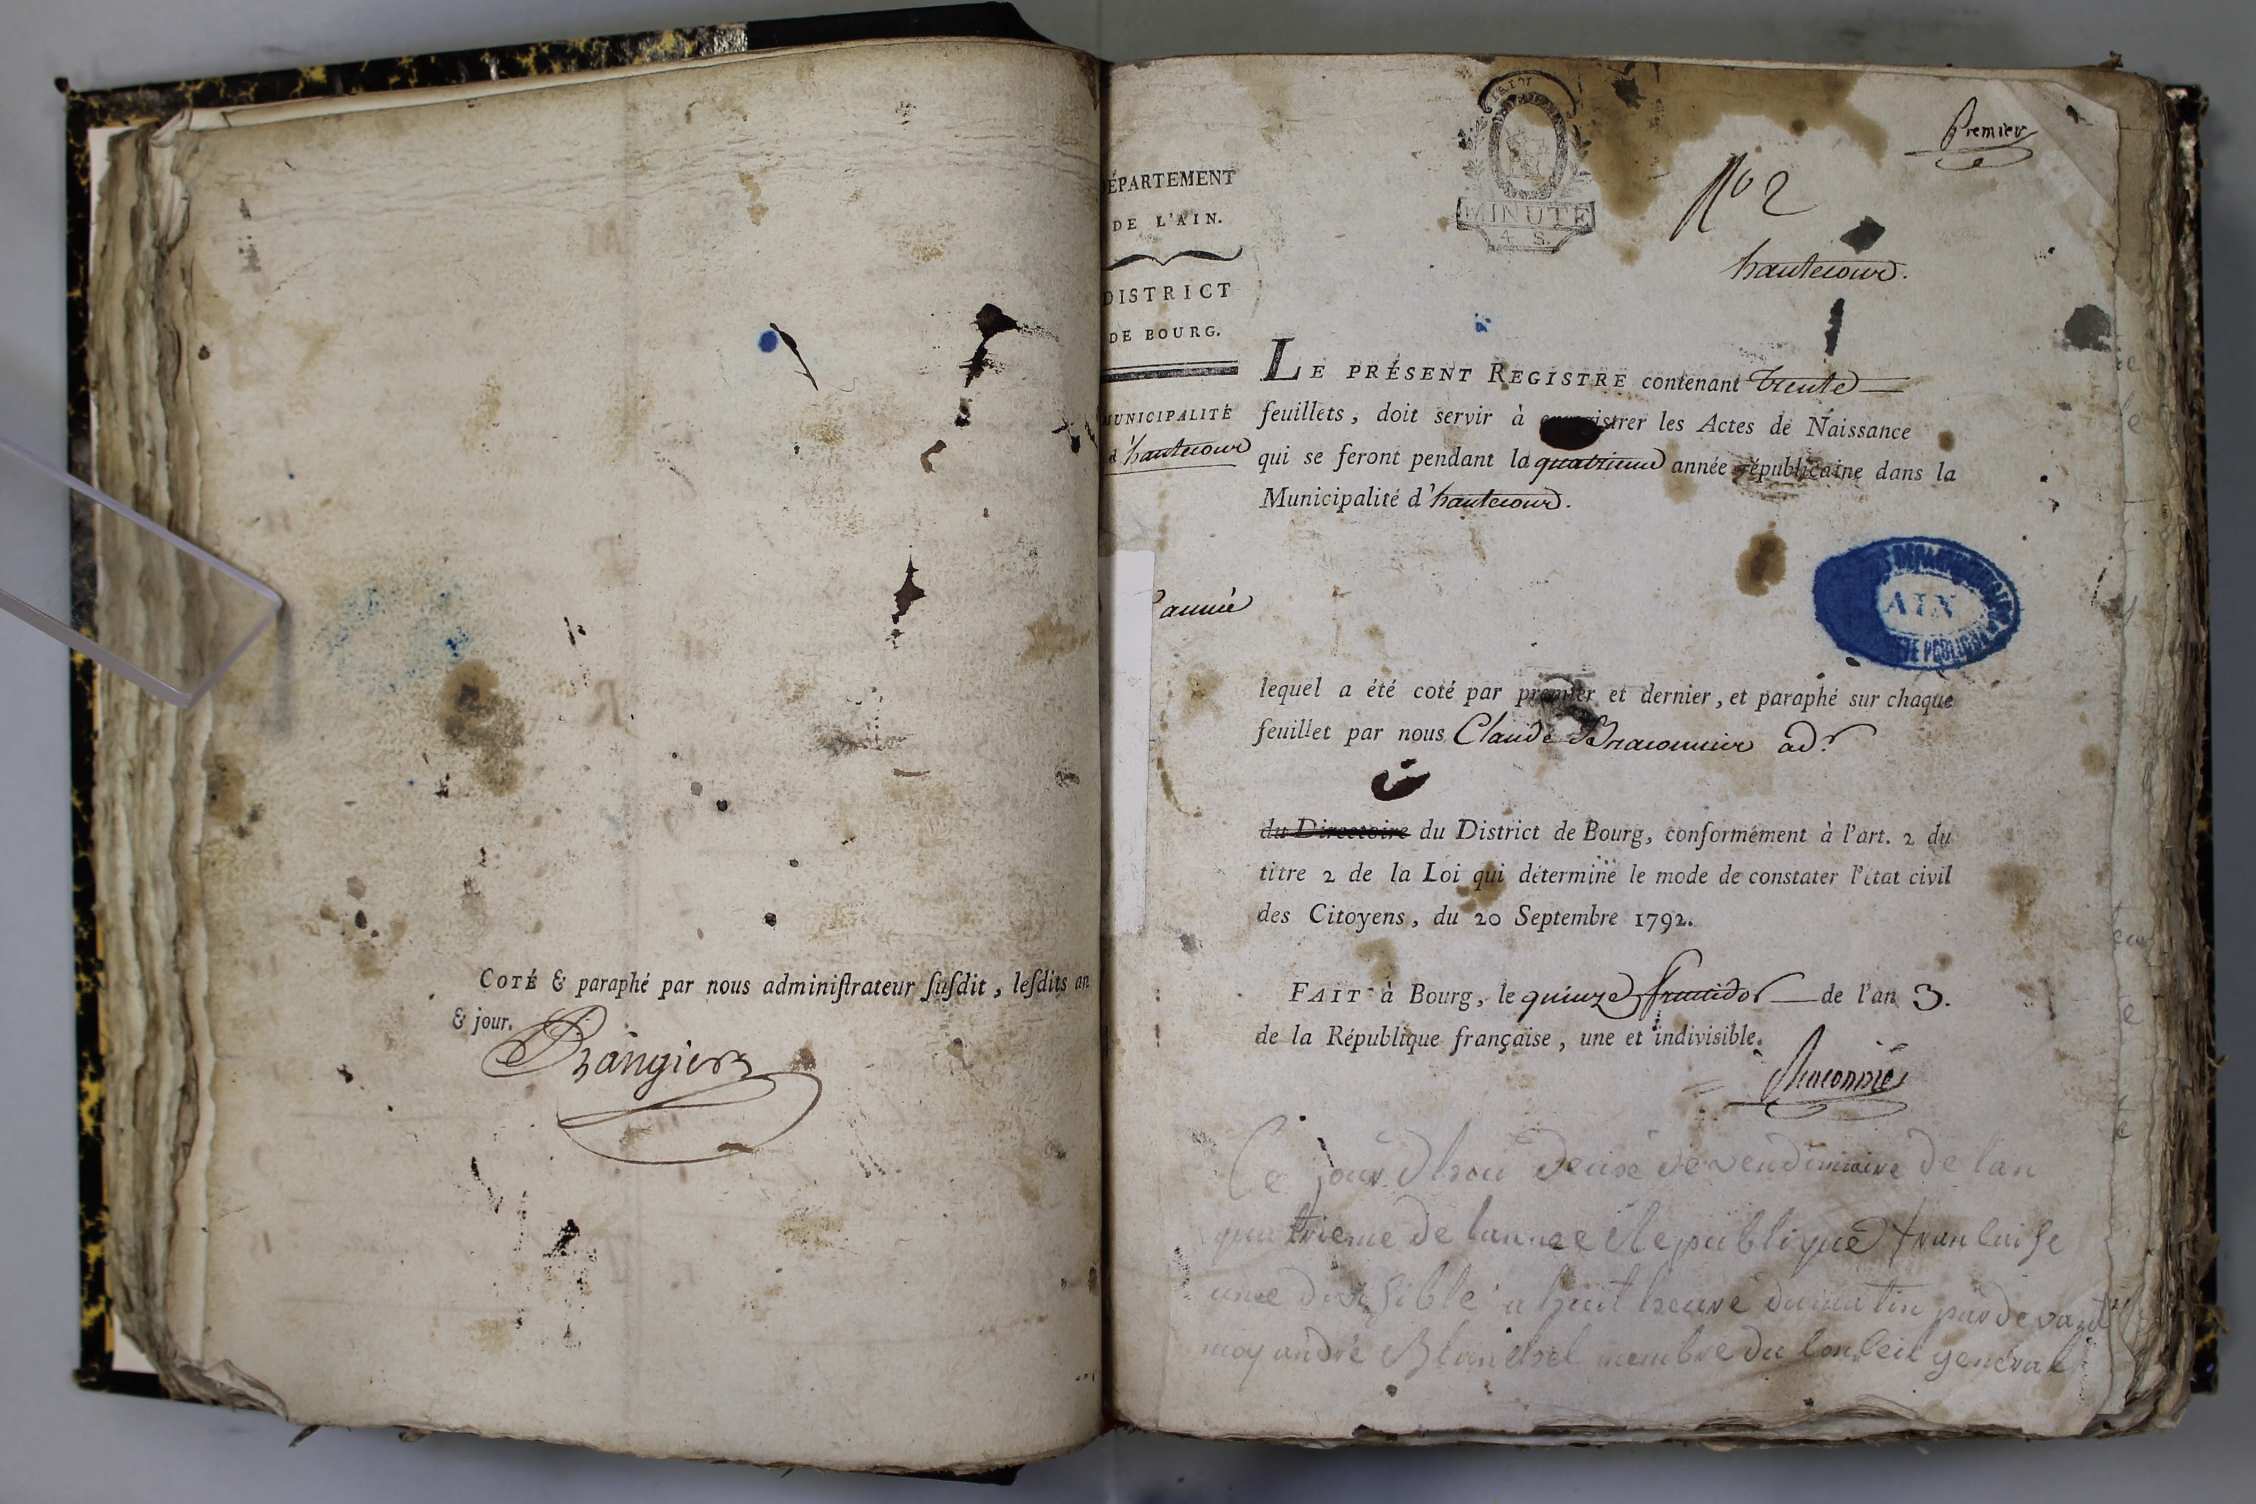 COTÉ & paraphé par nous adminiſtrateur ſuſdit, leſdits an
& jour.
ÉPARTEMENT
DE L'AIN.
DISTRICT
DE BOURG.
MUNICIPALITÉ
d'hautecour
année
MINUTE
4 S.
Premier
No 2
hautecour.
LE PRÉSENT REGISTRE contenant trente
feuillets, doit servir à enregistrer les Actes de Naissance
qui se feront pendant la quatrieme année républicaine dans la
Municipalité d'hautecour.
AIN
lequel a été coté par premier et dernier, et paraphé sur chaque
feuillet par nous Claude Braconnier adr
du Directoire du District de Bourg, conformément à l'art. 2 du
titre 2 de la Loi qui détermine le mode de constater l'état civil
des Citoyens, du 20 Septembre 1792.
FAIT à Bourg, le quinze fructidor de l'an 3.
de la République française, une et indivisible.
Braconnier
Ce jour dhui de vendimaire de lan
quatrieme de lannee Republique francaise
une divisible a huit heure du matin par devant
moy andré Blanchet membre du conseil general